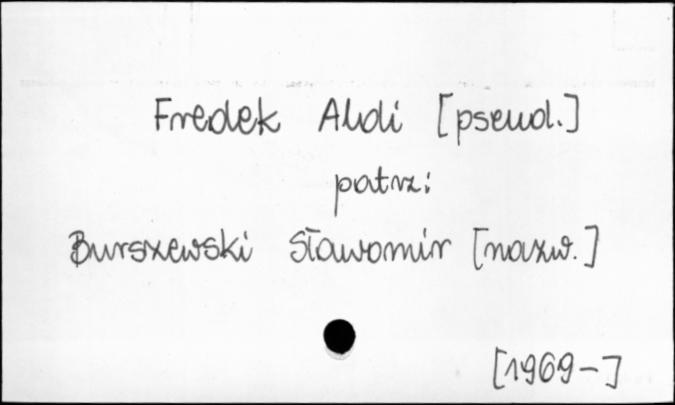 Fredek Aldi [pseud.]
patrz:
Burszewski Sławomir [nazw.]
[1969-]